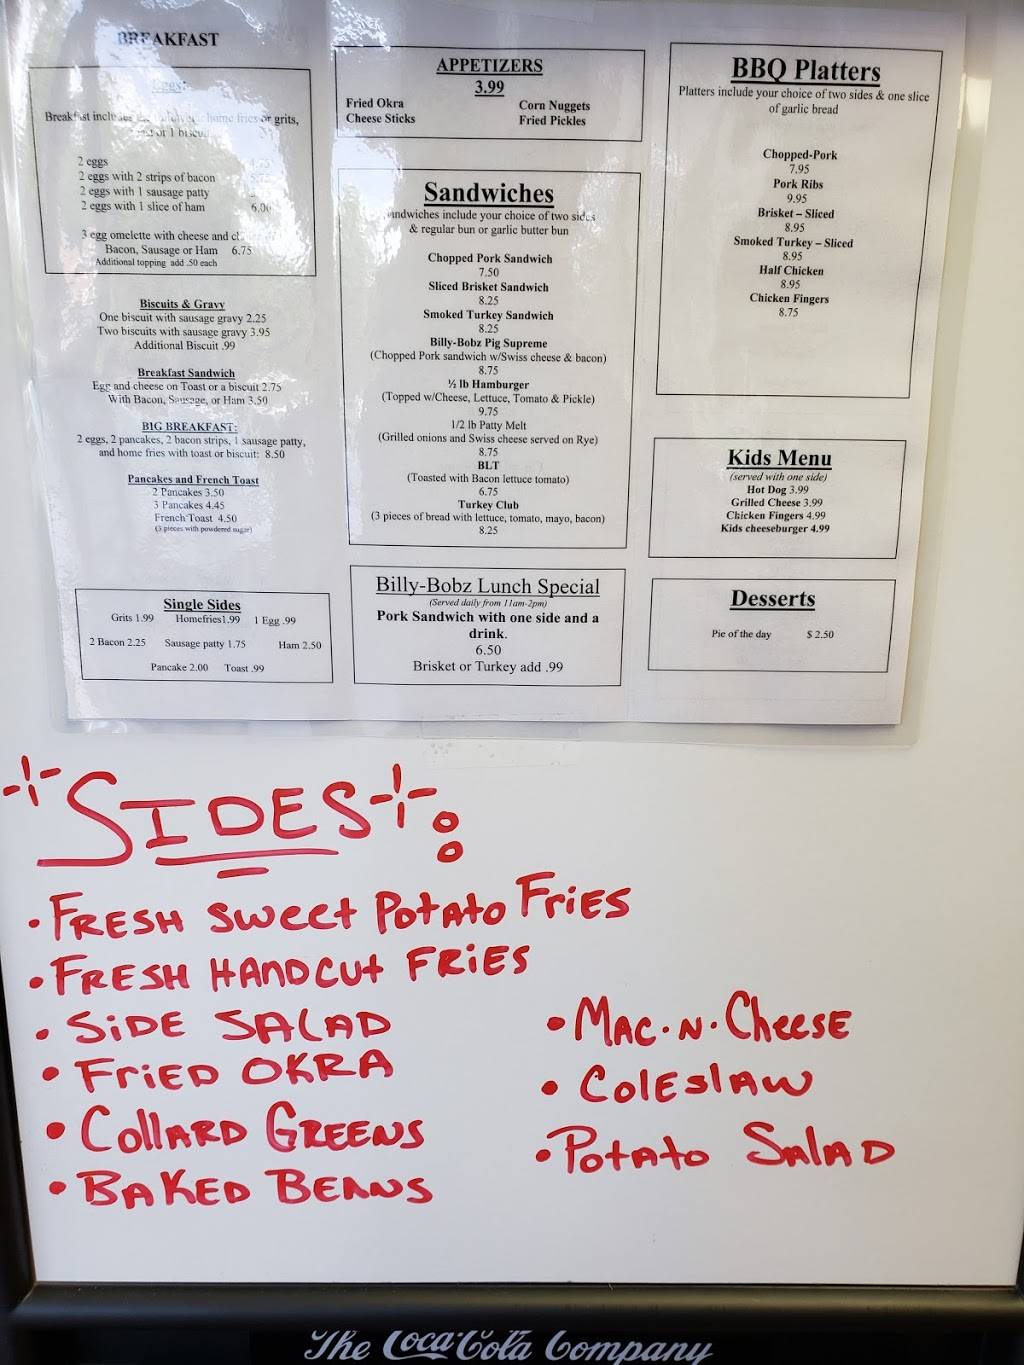 BREAKFAST
Eggs:
Breakfast includes home fries or grits,
or 1 biscuit
2 eggs
2 eggs with 2 strips of bacon
2 eggs with 1 sausage patty
2 eggs with 1 slice of ham 6.00
3 egg omelette with cheese and
Bacon, Sausage or Ham 6.75
Additional topping add .50 each
Biscuits & Gravy
One biscuit with sausage gravy 2.25
Two biscuits with sausage gravy 3.95
Additional Biscuit .99
Breakfast Sandwich
Egg and cheese on Toast or a biscuit 2.75
With Bacon, Sausage, or Ham 3.50
BIG BREAKFAST:
2 eggs, 2 pancakes, 2 bacon strips, 1 sausage patty,
and home fries with toast or biscuit: 8.50
Pancakes and French Toast
2 Pancakes 3.50
3 Pancakes 4.45
French Toast 4.50
(3 pieces with powdered sugar)
Single Sides
Grits 1.99 Homefries1.99 1 Egg .99
2 Bacon 2.25 Sausage patty 1.75 Ham 2.50
Pancake 2.00 Toast .99
APPETIZERS
3.99
Fried Okra Corn Nuggets
Cheese Sticks Fried Pickles
Sandwiches
Sandwiches include your choice of two sides
& regular bun or garlic butter bun
Chopped Pork Sandwich
7.50
Sliced Brisket Sandwich
8.25
Smoked Turkey Sandwich
8.25
Billy-Bobz Pig Supreme
(Chopped Pork sandwich w/Swiss cheese & bacon)
8.75
½ lb Hamburger
(Topped w/Cheese, Lettuce, Tomato & Pickle)
9.75
1/2 lb Patty Melt
(Grilled onions and Swiss cheese served on Rye)
8.75
BLT
(Toasted with Bacon lettuce tomato)
6.75
Turkey Club
(3 pieces of bread with lettuce, tomato, mayo, bacon)
8.25
Billy-Bobz Lunch Special
(Served daily from 11am-2pm)
Pork Sandwich with one side and a
drink.
6.50
Brisket or Turkey add .99
BBQ Platters
Platters include your choice of two sides & one slice
of garlic bread
Chopped-Pork
7.95
Pork Ribs
9.95
Brisket – Sliced
8.95
Smoked Turkey – Sliced
8.95
Half Chicken
8.95
Chicken Fingers
8.75
Kids Menu
(served with one side)
Hot Dog 3.99
Grilled Cheese 3.99
Chicken Fingers 4.99
Kids cheeseburger 4.99
Desserts
Pie of the day $ 2.50
SIDES:
• FRESH Sweet Potato Fries
• FRESH HANDCUt FRIES
• SiDE SALAD
• FriED OKRA
• Collard GREENS
• BAKED BEANS
• MAC•N•CheESE
• ColeslAW
• Potato SalAD
The Coca-Cola Company